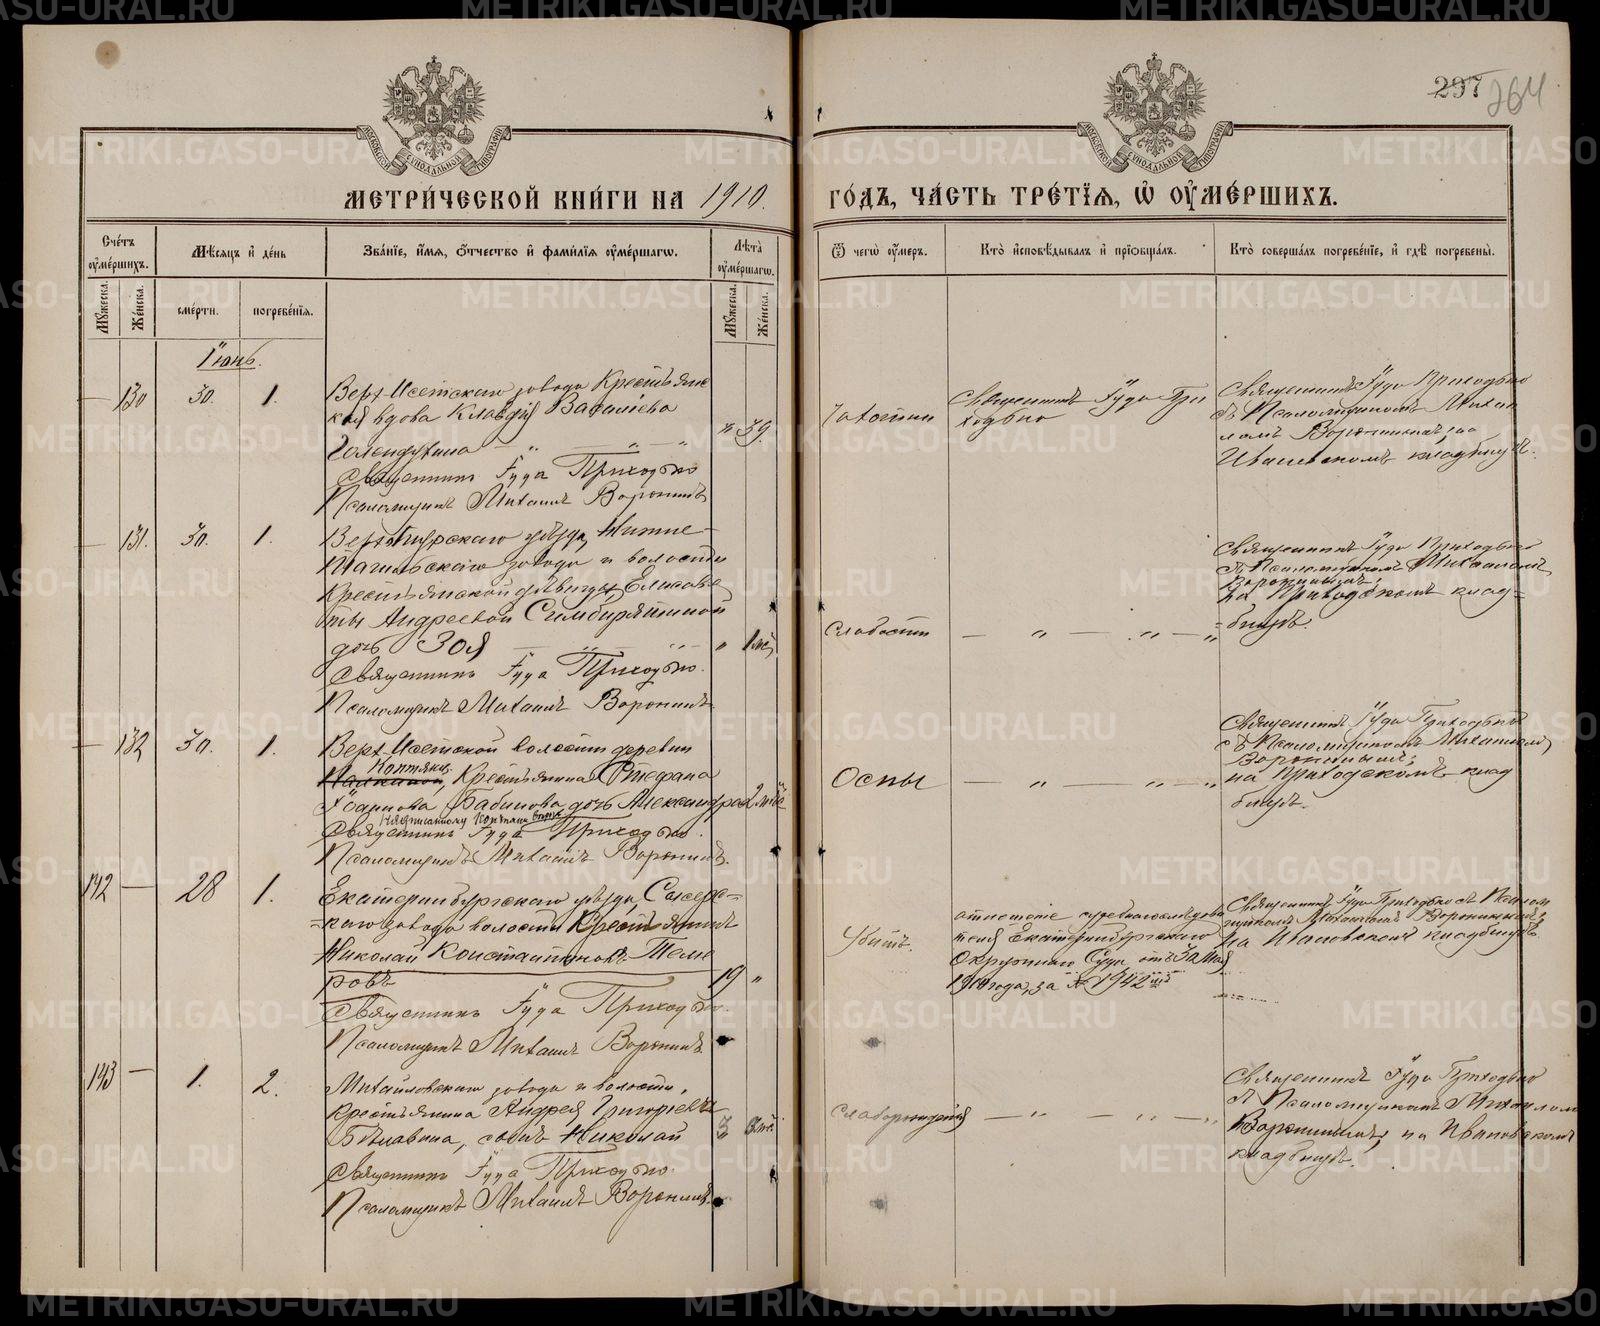 297
264
МОСКОВСКОЙ СѴНОДАЛЬНОЙ ТИПОГРАФІИ
МОСКОВСКОЙ СѴНОДАЛЬНОЙ ТИПОГРАФІИ
МЕТРИ́ЧЕСКОЙ КНИ́ГИ НА 1910.
ГО́ДЪ, ЧА́СТЬ ТРЕ́ТІЯ, Ѡ҆ ОУ҆МЕ́РШИХЪ.
Сче́тъ оу҆ме́ршихъ.
Мѣ́сяцъ и҆ де́нь
Зва́ніе, и҆́мя, ѻ҆́тчество и҆ фами́лія оу҆ме́ршагѡ.
Лѣта̀ оу҆ме́ршагѡ.
Ѿ чегѡ̀ оу҆́меръ.
Кто̀ и҆сповѣ́дывалъ и҆ прїѡбща́лъ.
Кто̀ соверша́лъ погребе́ніе, и҆ гдѣ̀ погребены̀.
Му́жеска.
Же́нска.
сме́рти.
погребе́нія.
Му́жеска.
Же́нска.
Іюнь.
— 130 30. 1.
Верх-Исетскаго завода Крестьянс
кая вдова Клавдія Васильева
" 39.
Священникъ Іуда Приходько
Псаломщикъ Михаилъ Воронинъ
Чахотки
Священникъ Іуда При
ходько
Священникъ Іуда Приходько
съ Псаломщикомъ Михаи
ломъ Воронинымъ, на
Ивановскомъ кладбищѣ.
— 131. 30. 1.
Верхотурскаго уѣзда, Нижне-
Тагильскаго завода и волости
Крестьянской дѣвицы, Елисаве
ты Андреевой Симбиряткиной
дочь Зоя " 1 мѣ
Священникъ Іуда Приходько.
Псаломщикъ Михаилъ Воронинъ
Слабости — " — " — "
Священникъ Іуда Приходько
съ Псаломщикомъ Михаиломъ
Воронинымъ,
на Приходскомъ клад-
бищѣ.
— 132 30. 1.
Верх-Исетской волости деревни
Коптяки,
Крестьянина Стефана
Бабинова дочь Александра 2 мѣс
Надписанному Коптяки вѣрить
Священникъ Іуда Приходько.
Псаломщикъ Михаилъ Воронинъ.
Оспы — " — " — "
Священникъ Іуда Приходько
съ Псаломщикомъ Михаиломъ
Воронинымъ,
на Приходскомъ клад
бищѣ.
142 — 28 1.
Екатеринбургскаго уѣзда, Сысерт-
скаго завода волости Крестьянинъ
Николай Константиновъ Теме
ровъ 19 "
Священникъ Іуда Приходько.
Псаломщикъ Михаилъ Воронинъ
Убитъ.
отношеніе судебнаго слѣдова
теля Екатеринбургскаго
Окружнаго Суда отъ 30 Мая
1910 года, за № 1942
Священникъ Іуда Приходько съ Псалом
щикомъ Михаиломъ Воронинымъ,
на Ивановскомъ кладбищѣ
143 — 1. 2.
Михайловскаго завода и волости,
крестьянина Андрея Григорьева
сынъ Николай " 3 мѣс
Священникъ Іуда Приходько.
Псаломщикъ Михаилъ Воронинъ.
Слаборожденія — " — " — "
Священникъ Іуда Приходько
съ Псаломщикомъ Михаиломъ
Воронинымъ, на Ивановскомъ
кладбищѣ.
METRIKI.GASO-URAL.RU